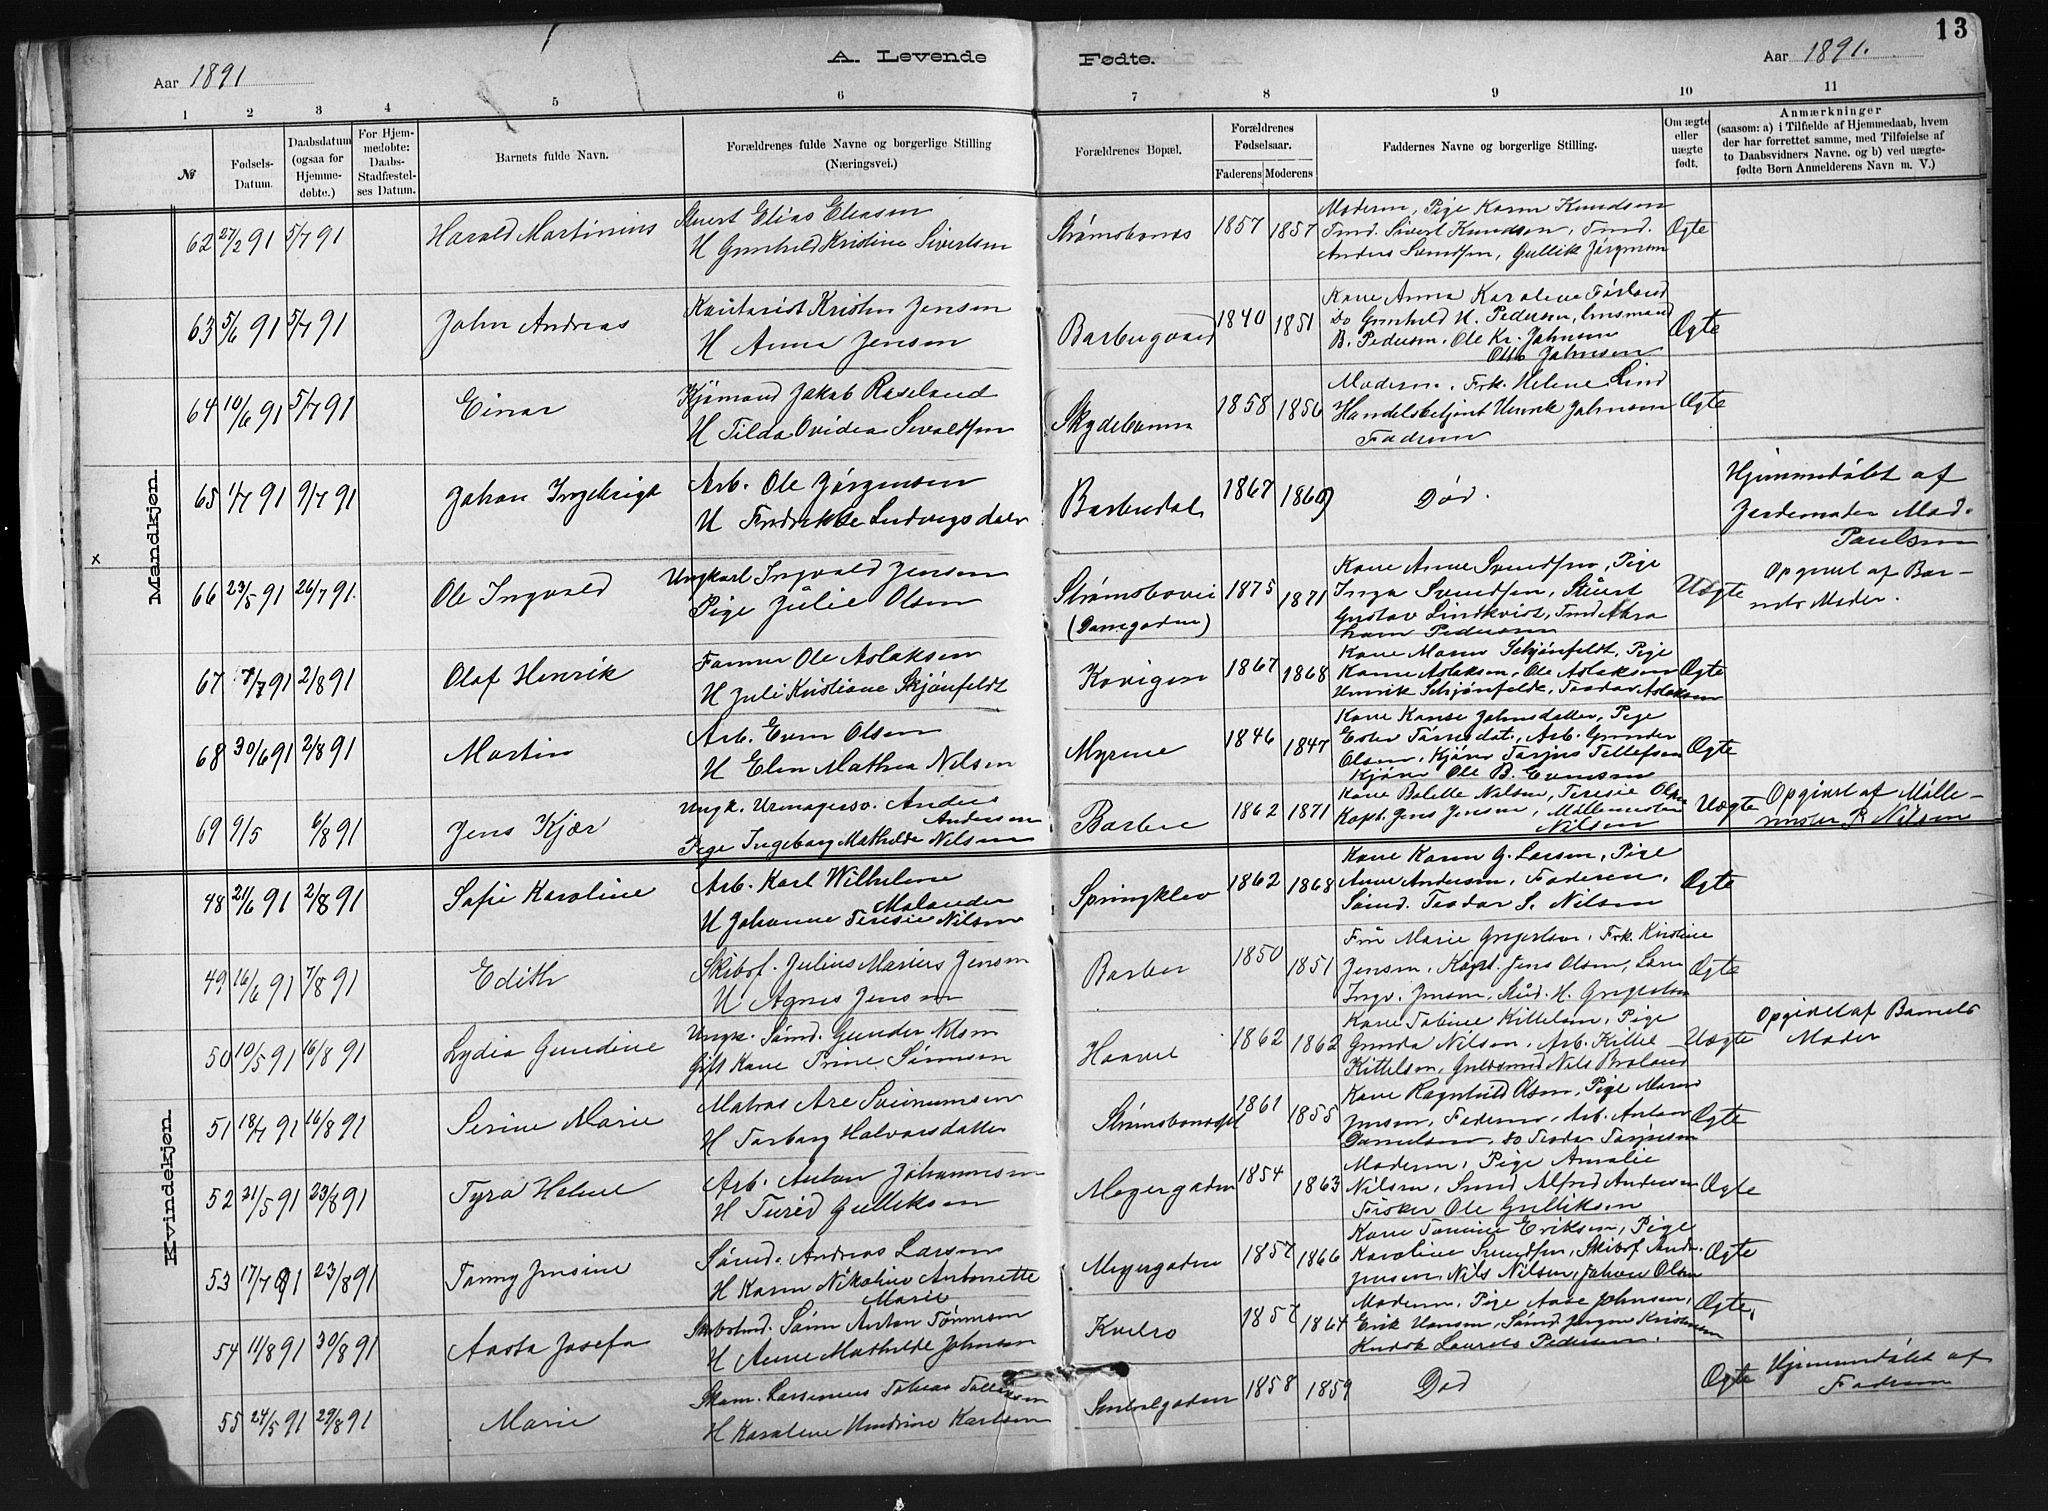 13
A. Levende Fødte.
Aar 1891
Aar 1891.
1 2 3 4 5 6 7 8 9 10 11
№
Fødsels-
Datum.
Daabsdatum
(ogsaa for
Hjemme-
døbte.)
For Hjem-
medøbte:
Daabs-
Stadfæstel-
ses Datum.
Barnets fulde Navn.
Forældrenes fulde Navne og borgerlige Stilling
(Næringsvei.)
Forældrenes Bopæl.
Forældrenes
Fødselsaar.
Faderens Moderens
Faddernes Navne og borgerlige Stilling.
Om ægte
eller
uægte
født.
Anmærkninger
(saasom: a) i Tilfælde af Hjemmedaab, hvem
der har forrettet samme, med Tilføielse af
to Daabsvidners Navne, og b) ved uægte-
fødte Børn Anmelderens Navn m. V.)
Mandkjøn.
62 27/2 91 5/7 91 Harald Martinius
Stuert Elias Eliasen
H Gunhild Kristine Sivertsen
1857 1857
Moderen, Pige Karen Knudsen
Tmd. Sivert Knudsen, Tmd.
Anders Svendsen, Gullik Jörgensen
Ægte
63 5/6 91 5/7 91 John Andreas
Kristen Jensen
H Anna Jensen
Barbugaard 1840 1851
Kone Anna Karoline
Do Gunhild H. Pedersen,
B. Pedersen, Ole Kr. Johnsen
Johnsen
Ægte
64 10/6 91 5/7 91 Einar
Kjömand Jakob Roseland
H Tilda Ovidea Sivaldsen
1858 1856
Moderen, Frk. Helene Lind
Handelsbetjent Henrik Johnsen
Faderen
Ægte
65 1/7 91 9/7 91 Johan Ingebrigt
Arb. Ole Jörgensen
H Fredrikke Ludvigsdatr
Barbudal 1867 1869
Död.
Hjemmedöbt af
Jordemoder Mad.
Paulsen
x
66 23/5 91 26/7 91. Ole Ingvald
Ungkarl Ingvald Jensen
Pige Julie Olsen
Strömsbovei
1875 1871
Kone Anne Svendsen, Pige
Inga Svendsen, Stuert
Gustav Lindkvist, Tmd Abra
ham Pedersen
Uægte
Opgivet af Bar-
nets Moder.
67 7/7 91 2/8 91 Olaf Henrik
Farmer Ole Aslaksen
H Juli Kristiane Skjönfeldt
Kovigen 1867 1868
Kone Maren Schjönfeldt, Pige
Karine Aslaksen, Ole Aslaksen
Henrik Schjönfeldt, Teodor Aslaksen
Ægte
68 30/6 91 2/8 91 Martin
Arb. Even Olsen
H Elen Mathea Nilsen
Myrene 1846 1847
Kone Johnsdatter, Pige
Ester Arb. Gunder
Olsen, Kjörer Torjus Tellefsen
Kjörer Ole B. Evensen
Ægte
69 9/5 6/8 91 Jens Kjær
Ungk. Urmagersv. Anders
Andersen
Pige Ingeborg Mathilde Nilsen
Barbu 1862 1871
Kone Bolette Nilsen, Teresie Olsen
Kapt. Jens Jensen, Möllemester
Nilsen
Uægte
Opgivet af Mölle-
mester P Nilsen
Kvindekjøn.
48 21/6 91 2/8 91 Sofie Karoline
Arb. Karl Wilhelm
Malander
H Johanne Teresie Nilsen
Springklev 1862 1868
Kone Karen G. Larsen, Pige
Anne Andersen, Faderen,
Sömd. Teodor S. Nilsen
Ægte
49 16/6 91 7/8 91 Edith
Skibsf. Julius Marius Jensen
H Agnes Jensen
Barbu 1850 1851
Fru Marie Gregersen, Frk. Kristine
Jensen, Kapt. Jens Olsen,
Ingv. Jensen, Stud. H. Gregersen
Ægte
50 10/5 91 16/8 91 Lydia Gundine
Ungk. Sömd. Gunder Nilsen
Gift Kone Trine Sörensen
1862 1862
Kone Tobine Kittelsen, Pige
Gunda Nilsen, Arb. Kittel
Kittelsen, Guldsmed Nils
Uægte
Opgivet af Barnets
Moder
51 18/7 91 16/8 91 Serine Marie
Matros Are
H Torborg Halvorsdatter
1861 1855
Kone Ragnhild Olsen, Pige Maren
Jensen, Faderen, Arb. Anton
Danielsen, do Teodor
Ægte
52 21/5 91 23/8 91 Tyra Helene
Arb. Anton Johannesen
H Turid Gulliksen
Meyergaden 1854 1863
Moderen, Pige Amalie
Nilsen, Smed Alfred Andersen
Fisker Ole Gulliksen
Ægte
53 17/7 91 23/8 91 Tomy Jensine
Sömd. Andreas Larsen
H Karen Nikoline Antonette
Marie
Meyergaden 1857 1866
Kone Tomine Eriksen, Pige
Karoline Svendsen, Skibsf Andr.
Jensen, Nils Nilsen, Johan Olsen
Ægte
54 11/8 91 30/8 91 Aasta Josefa
Sören Anton Tönnesen
H Anne Mathilde Johnsen
1857 1864
Moderen, Pige Aase Johnsen,
Erik Hansen, Sömd Jörgen Kristensen
Laurits Pedersen.
Ægte.
55 24/5 91 29/8 91 Marie
Tobias
H Karoline Hendrine Karlsen
1858 1859
Död
Ægte
Hjemmedöbt af
Faderen